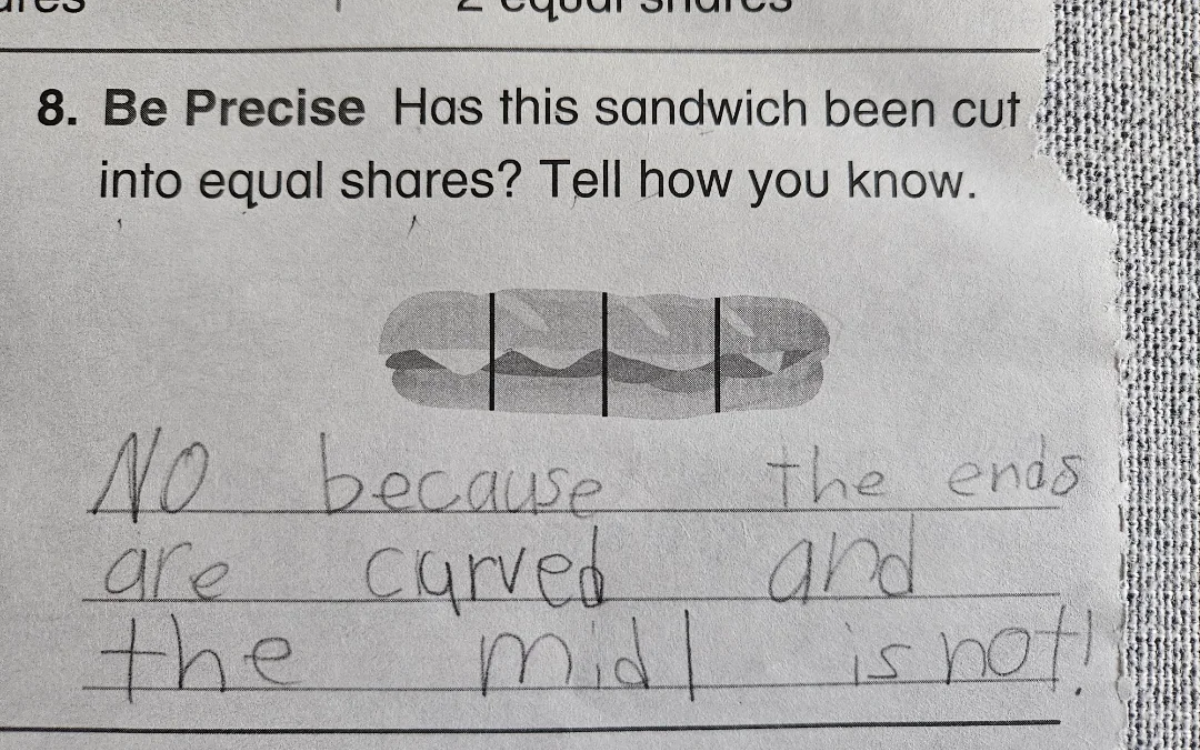 2 equal shares
8. Be Precise Has this sandwich been cut
into equal shares? Tell how you know.
NO because the ends
are curved and
the midl is not!